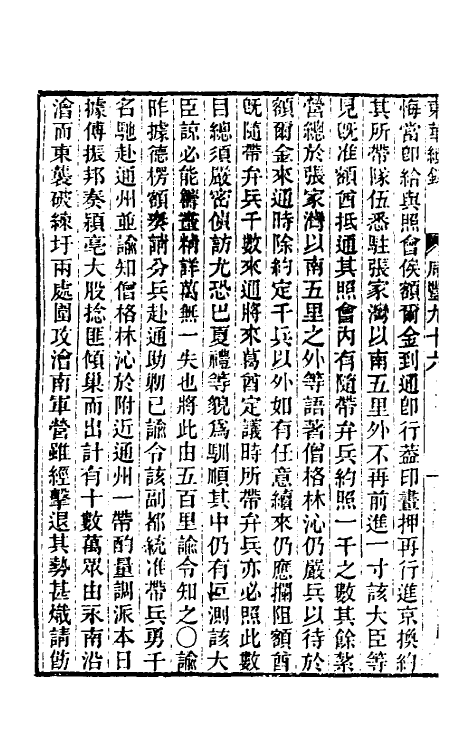 東華續錄　咸豐九十六
悔當卽給與照會俟額爾金到通卽行蓋印畫押再行進京換約
其所帶隊伍悉駐張家灣以南五里外不再前進一寸該大臣等
見旣准額酋抵通其照會內有隨帶弁兵約照一千之數其餘紮
營總於張家灣以南五里之外等語著僧格林沁仍嚴兵以待於
額爾金來通時除約定千兵以外如有任意續來仍應攔阻額酋
旣隨帶弁兵千數來通將來葛酋定議時所帶弁兵亦必照此數
目總須嚴密偵訪尤恐巴夏禮等貌爲馴順其中仍有叵測該大
臣諒必能籌畫精詳萬無一失也將此由五百里諭令知之〇諭
昨據德楞額奏請分兵赴通助勦已諭令該副都統准帶兵勇千
名馳赴通州並諭知僧格林沁於附近通州一帶酌量調派本日
據傅振邦奏潁亳大股捻匪傾巢而出計有十數萬眾由永南沿
澮而東襲破練圩兩處圍攻澮南軍營雖經擊退其勢甚熾請飭